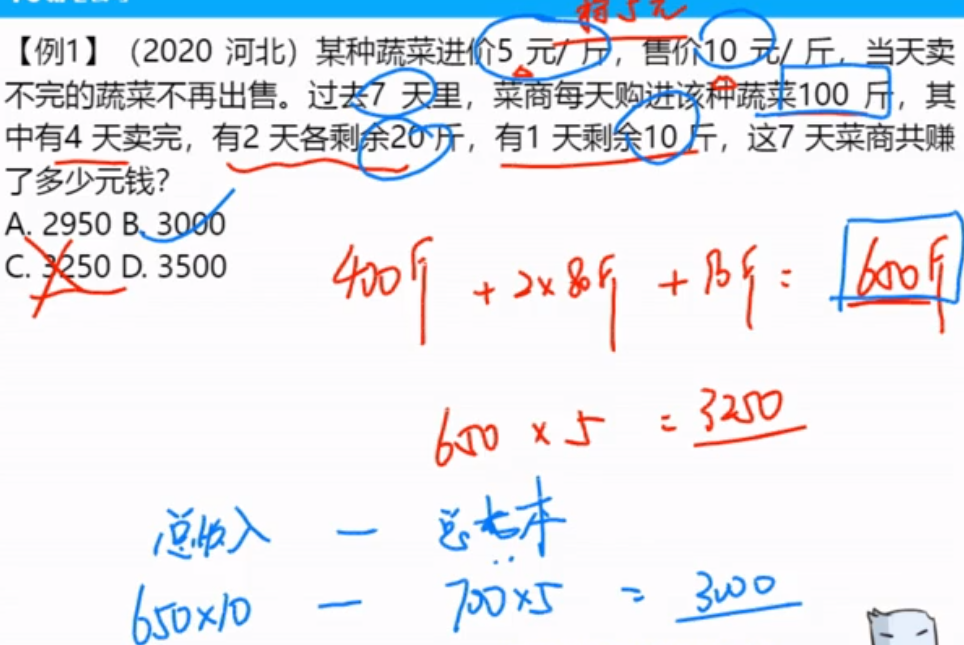 【例1】（2020 河北）某种蔬菜进价5 元/ 斤，售价10 元/ 斤，当天卖
不完的蔬菜不再出售。过去7 天里，菜商每天购进该种蔬菜100 斤，其
中有4 天卖完，有2 天各剩余20 斤，有1 天剩余10 斤，这7 天菜商共赚
了多少元钱？
A. 2950 B. 3000
C. 3250 D. 3500
400斤 + 2×80斤 + 斤 = 650斤
650 × 5 = 3250
总收入 — 总成本
650×10 — 700×5 = 3000